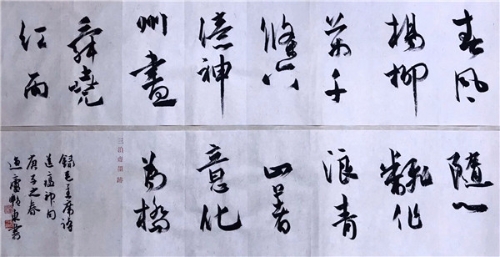 春風
楊柳
萬千
條六
億神
州盡
舜堯
紅雨
隨心
翻作
浪青
山著
意化
為橋
錄毛主席詩
送瘟神句
庚子之春
書